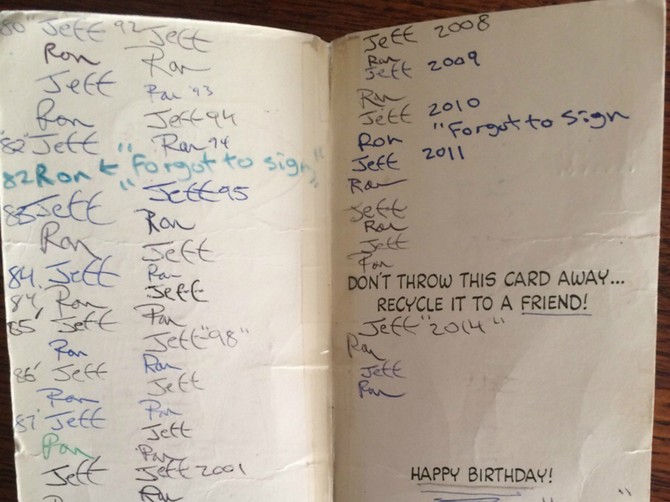 80 Jeff
Ron
Jeff
Ron
'82 Jeff
82 Ron ← "Forgot to sign"
83 Jeff
Ron
84. Jeff
84' Ron
85' Jeff
Ron
86' Jeff
Ron
87' Jeff
Ron
Jeff
92 Jeff
Ron
Ron '93
Jeff 94
Ron 94
Jeff 95
Ron
Jeff
Ron
Jeff
Ron
Jeff "98"
Ron
Jeff
Ron
Jeff
Ron
Jeff 2001
Ron
Jeff 2008
Ron
Jeff 2009
Ron
Jeff 2010
Ron "Forgot to sign
Jeff 2011
Ron
Jeff
Ron
Jeff
Ron
DON'T THROW THIS CARD AWAY...
RECYCLE IT TO A FRIEND!
Jeff "2014"
Ron
Jeff
Ron
HAPPY BIRTHDAY!